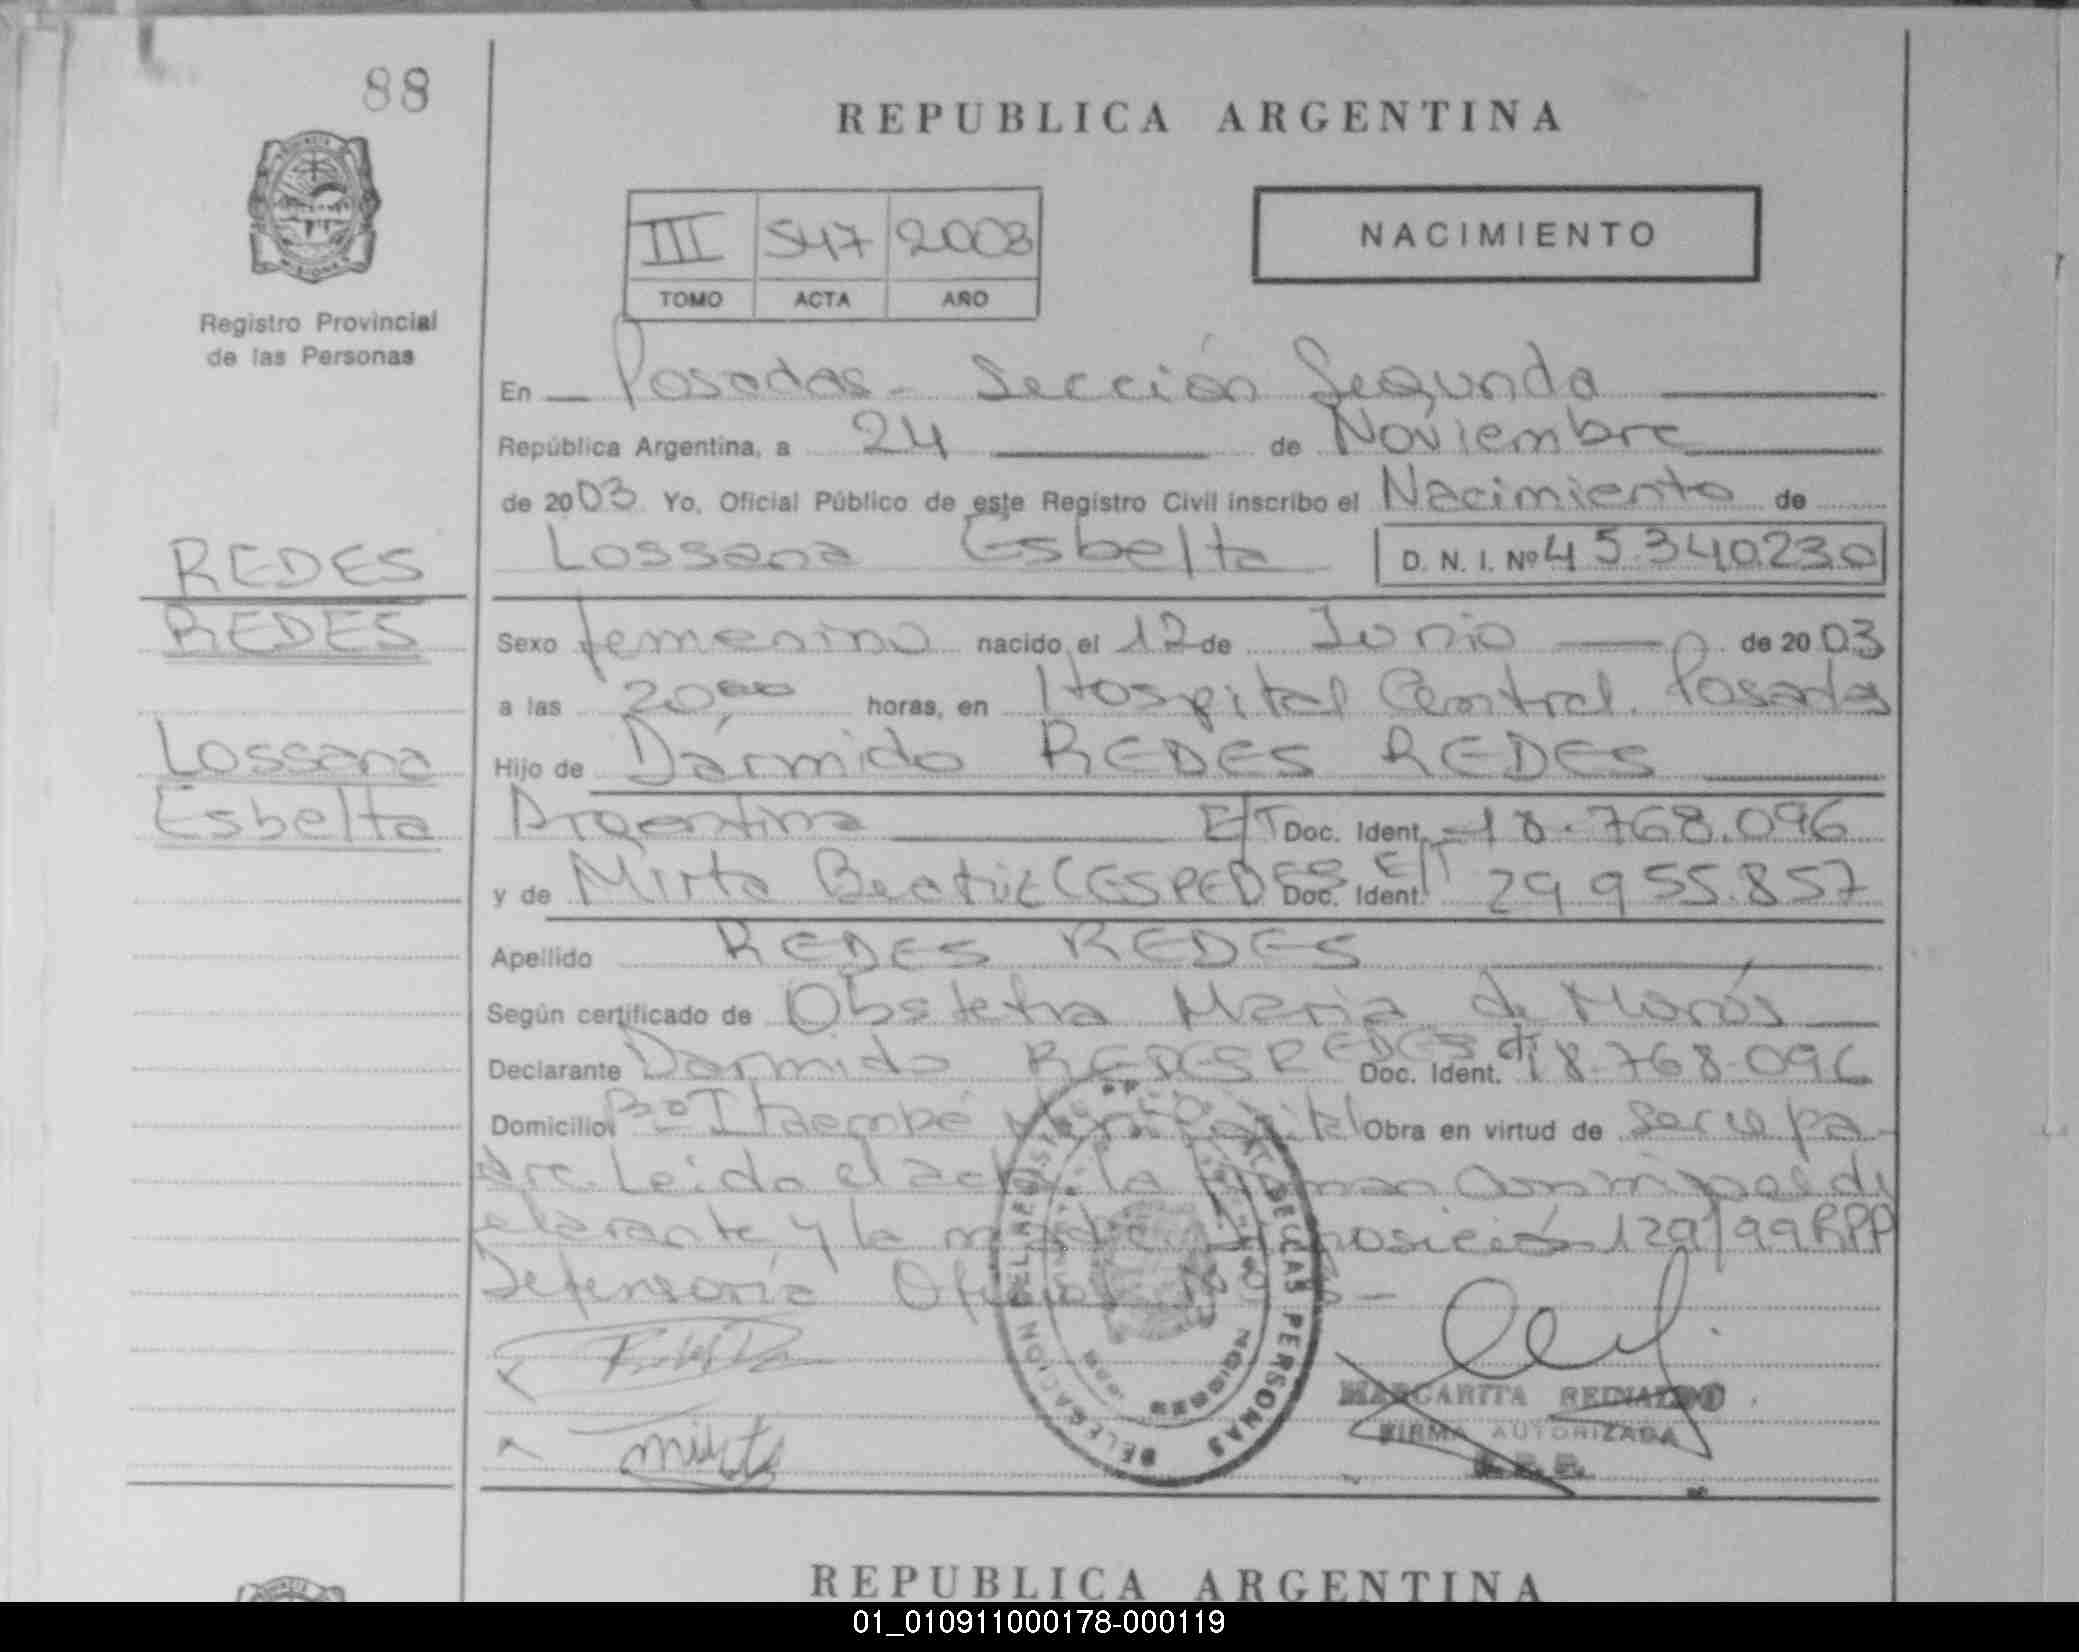 88
REPUBLICA ARGENTINA
III 547 2003
TOMO ACTA AÑO
NACIMIENTO
Registro Provincial
de las Personas
En Posadas - Sección Segunda
República Argentina, a 24 de Noviembre
de 2003. Yo, Oficial Público de este Registro Civil inscribo el Nacimiento de
Lossana Esbelta D. N. I. Nº 45.340.230
REDES
REDES
Lossana
Esbelta
Sexo femenino nacido el 12 de Junio de 2003
a las 20⁰⁰ horas, en Hospital Central. Posadas
Hijo de Dármido REDES REDES
Argentina E/T Doc. Ident. 18.768.096
y de Mirta Beatriz CESPEDES E/T Doc. Ident. 29 955.857
Apellido REDES REDES
Según certificado de Obstetra Maria de
Declarante Darmido REDES REDES Doc. Ident. 18.768.096
Domicilio Bº Itaembé Obra en virtud de ser el pa-
dre. Leido el acta la firman conmigo el de
clarante y la madre Disposición 129/99 RPP
Defensoría Oficial
DELEGACION DEL REGISTRO DE LAS PERSONAS
MISIONES
Mirta
MARGARITA REINALDO
FIRMA AUTORIZADA
REPUBLICA ARGENTINA
01_010911000178-000119